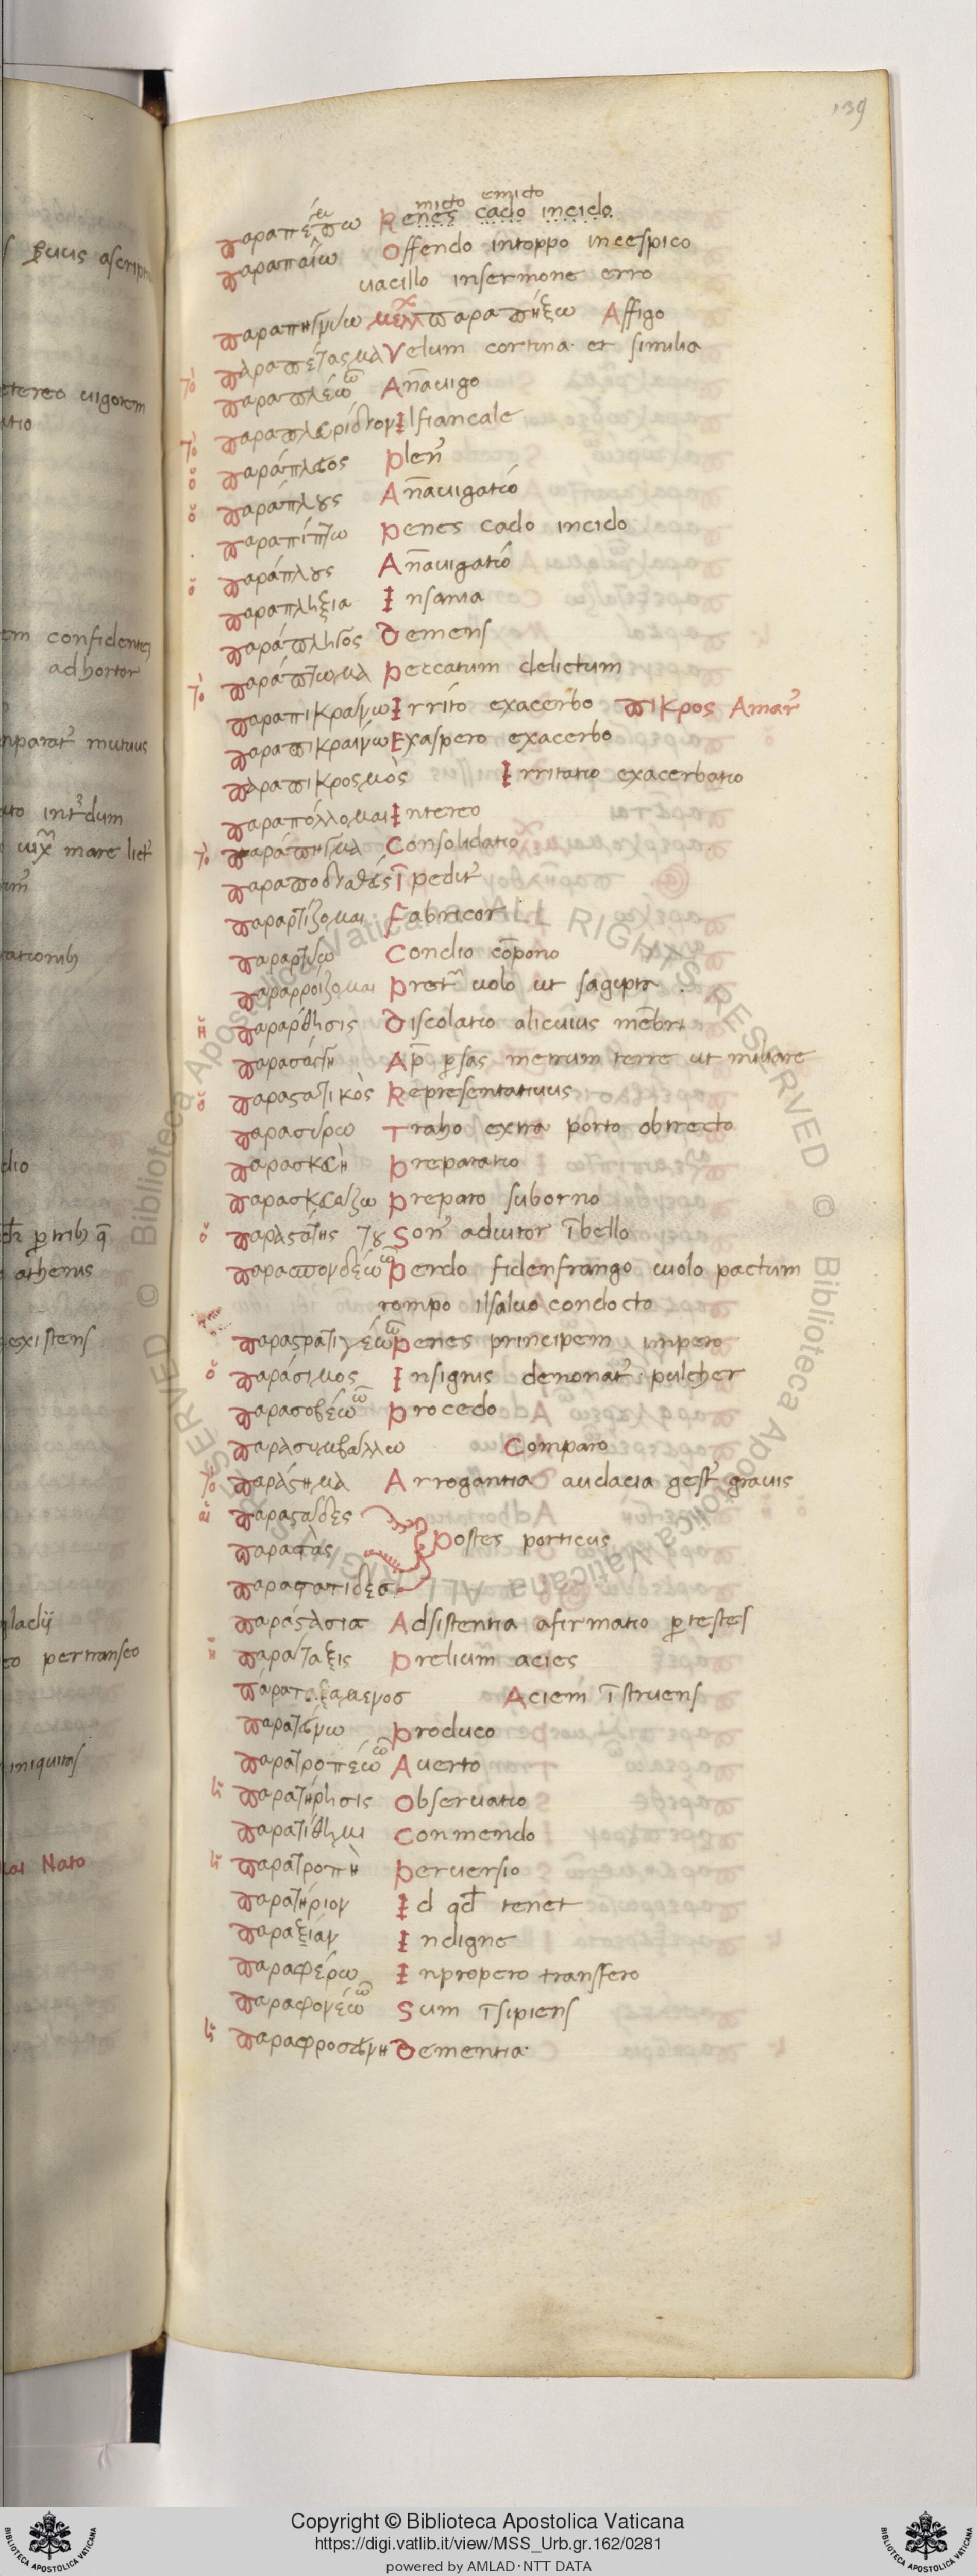 139
micto emicto
παραπέμπω Penes cado incido.
παραπαίω Offendo intoppo incespico
uacillo insermone erro
παραπηγνύω μελλ παραπήξω Affigo
τὸ παραπέτασμα Velum cortina et similia
παραπλέω ῶ Anauigo
τὸ παραπλευρίδιον Ilfiancale
ὁ παράπλεος Plenꝰ
ὁ παράπλους Anauigatio
παραπίπτω Penes cado incido
ὁ παράπλους Anauigatio
παραπληξια Insania
παράπληγος Demens
τὸ παράπτωμα Peccatum delictum
παραπικραίνω Irrito exacerbo πικρος Amarꝰ
παραπικραίνω Exaspero exacerbo
παραπικροσμὸς Irritatio exacerbatio
παραπόλλομαι Intereo
τὸ παράπηγμα Consolidatio
Īpeditꝰ
παραρτίζομαι Fabricor
παραρτύω Condio cōpono
παραρροιζομαι uolo ut sagipta
ἡ παραρθησις Discolatio alicuius mēbri
παρασάγγη Ap̄ ꝑsas metrum terre ut miliare
ὁ παραστατικὸς Representatiuus
παρασύρω Traho extra porto obtrecto
παρασκευὴ Preparatio
παρασκευάζω Preparo suborno
ὁ παραστάτης του adiutor ībello
παρασπονδέω ῶ Perdo fidenfrango uiolo pactum
rompo ilsaluo condocto
παραστρατηγέω ῶ Penes principem impero
ὁ παράσιμος Insignis denonatꝰ pulcher
παρασοβέω ῶ Procedo
παρασυμβαλλω Comparo
τὸ παράστημα Arrogantia audacia gestꝰ grauis
αἱ παρασταδες
παραστὰς Postes porticus
παραστατιδεσ
παράστασια Adsistentia afirmatio ꝑtestes
ἡ παράταξις Prelium acies
παραταξαμενοσ Aciem īstruens
παρατείνω Produco
παρατροπέω ῶ Auerto
ἡ παρατήρησις Obseruatio
παρατίθημι Conmendo
ἡ παρατροπὴ Peruersio
παρατήριον Id qd̄ tenet
παραξιάν Indigne
παραφέρω Inpropero transfero
παραφονέω ῶ Sum īsipiens
ἡ παραφροσύνη Dementia
Copyright © Biblioteca Apostolica Vaticana
https://digi.vatlib.it/view/MSS_Urb.gr.162/0281
powered by AMLAD·NTT DATA